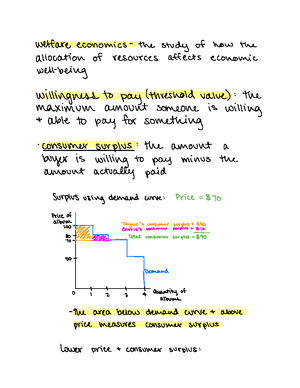 welfare economics - the study of how the
allocation of resources affects economic
well-being
willingness to pay (threshold value): the
maximum amount someone is willing
+ able to pay for something
· consumer surplus: the amount a
buyer is willing to pay minus the
amount actually paid
Surplus using demand curve: Price = $70
Price of
album
100
80
70
50
consumer surplus =
consumer surplus =
Total consumer surplus = $40
Demand
0 1 2 3 4
Quantity of
albums
-the area below demand curve + above
price measures consumer surplus
Lower price + consumer surplus: